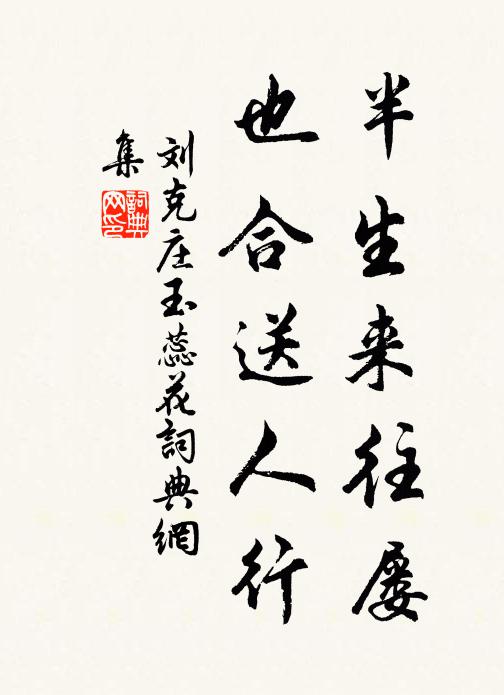 半生来往屡
也合送人行
刘克庄玉蕊花詞典網
集
詞典
网印